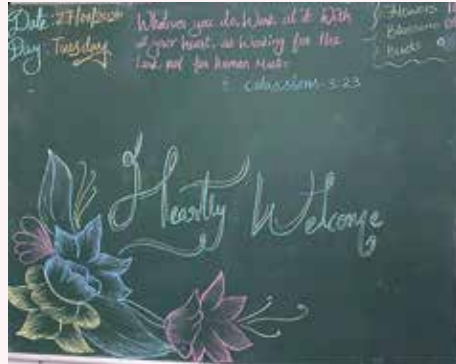 Date:
Day: Tuesday
Whatever you do, Work at it With
all your heart, as Working for the
Lord not for human Mast-
Colossians-3:23
Flowers
Blossoms
Buds
Heartly Welcome